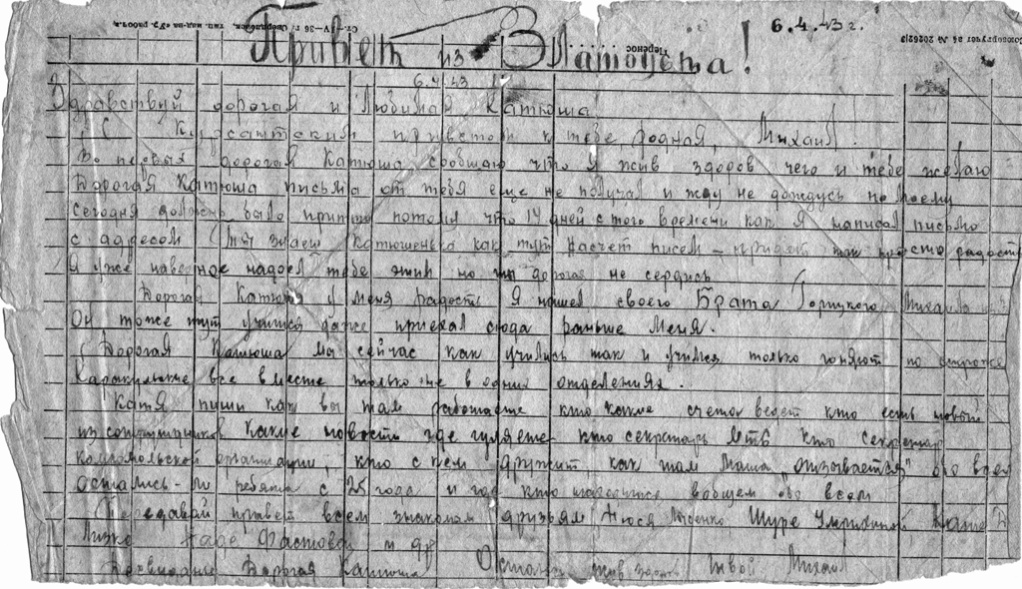 6.4.43 г.
Привет из Златоуста!
Перенос
6.4.43
Здравствуй дорогая и Любимая Катюша
С Курсантским приветом к тебе родная, Михаил.
Во первых дорогая Катюша сообщаю что я жив здоров чего и тебе желаю
Дорогая Катюша письма от тебя еще не получал и жду не дождусь по моему
сегодня должно было притти потому что 14 дней с того времени как я написал письмо
с адресом ты знаеш Катюшенька как тут насчет писем – придет так просто радость
Я уже наверное надоел тебе этим но ты дорогая не сердись
Дорогая Катюша у меня радость Я нашел своего Брата Горицкого Михаила
Он тоже тут учился даже приехал сюда раньше Меня.
Дорогая Катюша мы сейчас как учились так и учимся только гоняют по
все вместе только не в одних отделениях.
Катя пиши как вы там работаете кто какие счета ведет кто есть новый
из сотрудников Какие новости где гуляете кто секретарь кто секретар
комсомольской организации, кто с кем дружит как там Маша „отзывается" обо всем
остались-ли ребята с 25 года и где кто находится вобщем обо всем
Передавай привет всем знакомым друзьям Люся Шуре Кате
Лизке и др
Досвидание Дорогая Катюша Остаюсь жив здоров Твой Михаил